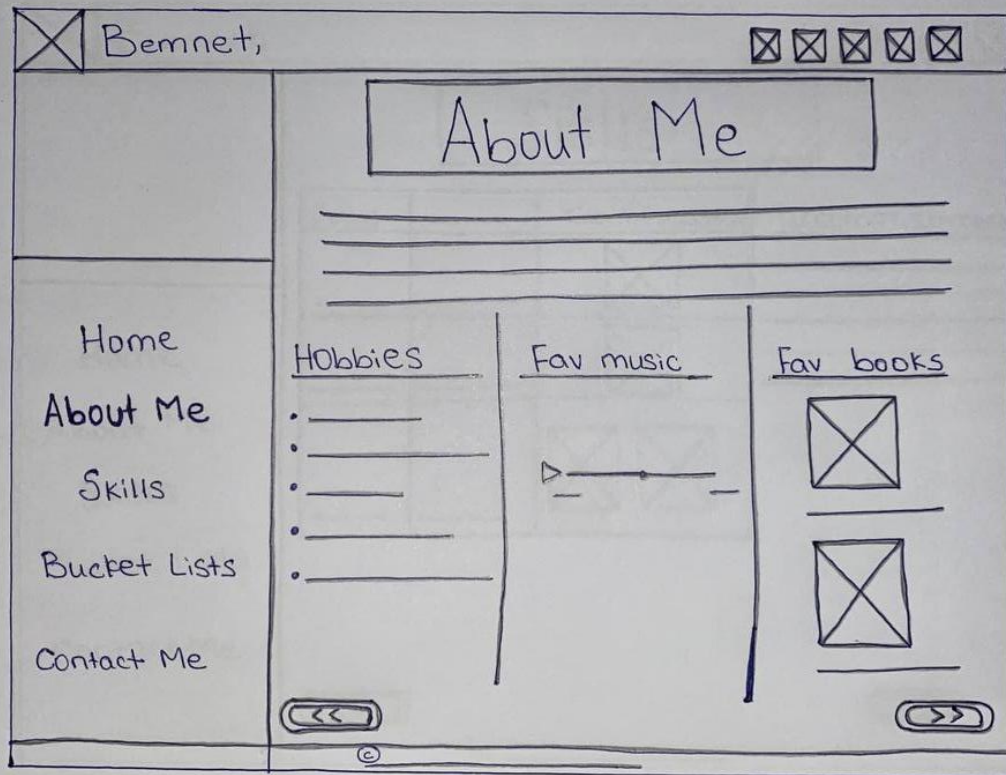 Bemnet,
About Me
Home
About Me
Skills
Bucket Lists
Contact Me
Hobbies
Fav music
Fav books
<<
>>
©